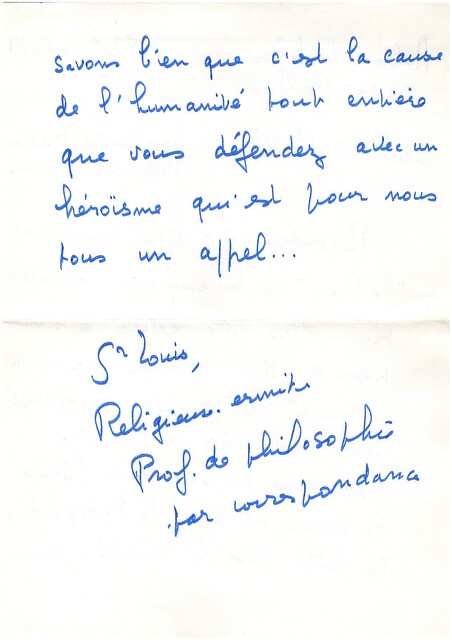 savons bien que c'est la cause
de l'humanité tout entière
que vous défendez avec un
héroïsme qui est pour nous
tous un appel...
Sr Louis,
Religieux. ermite
Prof. de philosophie
par correspondance